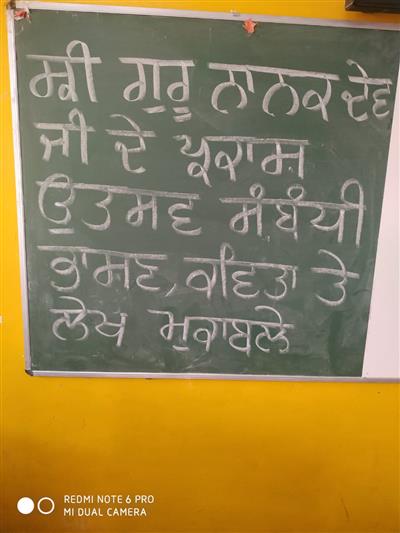 ਸ੍ਰੀ ਗੁਰੂ ਨਾਨਕ ਦੇਵ
ਜੀ ਦੇ ਪ੍ਰਕਾਸ਼
ਉਤਸਵ ਸੰਬੰਧੀ
ਭਾਸਣ, ਕਵਿਤਾ ਤੇ
ਲੇਖ ਮੁਕਾਬਲੇ
REDMI NOTE 6 PRO
MI DUAL CAMERA